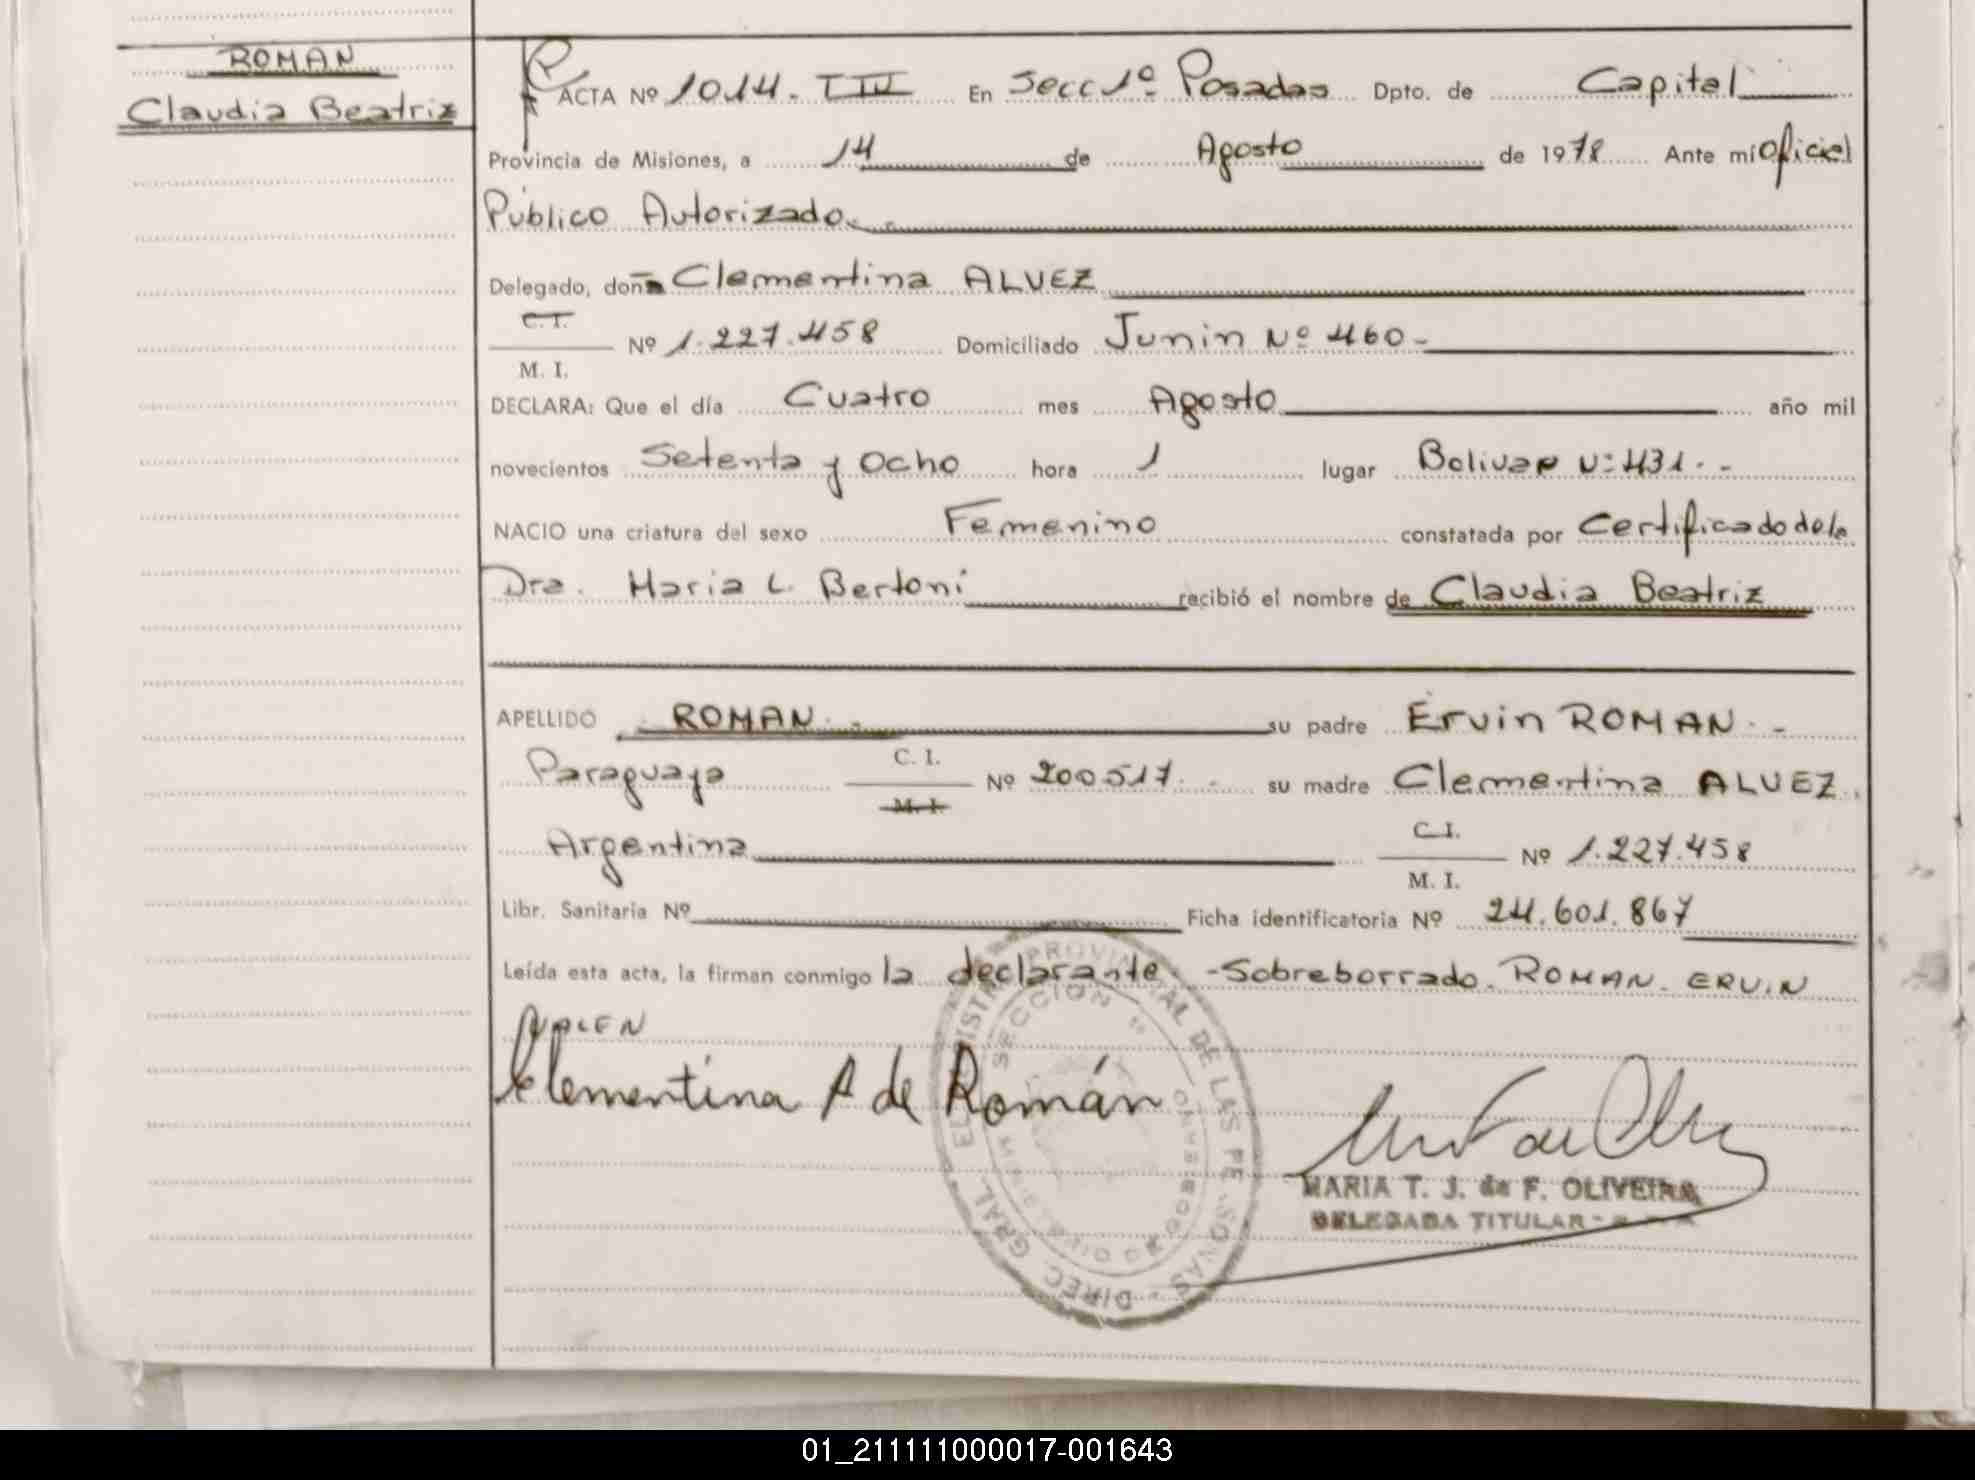 ROMAN
Claudia Beatriz
ACTA Nº 1014. TIII En Secc 1º Posadas Dpto. de Capital
Provincia de Misiones, a 14 de Agosto de 1978 Ante mí Oficial
Público Autorizado.
Delegado, doña Clementina ALVEZ
C. I.
Nº 1.227.458 Domiciliado Junin Nº 460.-
M. I.
DECLARA: Que el día Cuatro mes Agosto año mil
novecientos Setenta y Ocho hora 1 lugar Bolivar Nº 431.-
NACIO una criatura del sexo Femenino constatada por Certificado de la
Dra. Maria L. Bertoni recibió el nombre de Claudia Beatriz
APELLIDO ROMAN.- su padre Ervin ROMAN.-
Paraguaya C. I. Nº 200517.- su madre Clementina ALVEZ.
M. I.
Argentina C. I. Nº 1.227.458
M. I.
Libr. Sanitaria Nº Ficha identificatoria Nº 24.601.867
Leída esta acta, la firman conmigo la declarante.-Sobreborrado. ROMAN. ERVIN
VALEN
Clementina A de Román
MARIA T. J. de F. OLIVEIRA
DELEGADA TITULAR
DIREC. GRAL. EL REGISTRO PROVINCIAL DE LAS PERSONAS
SECCION
01_211111000017-001643